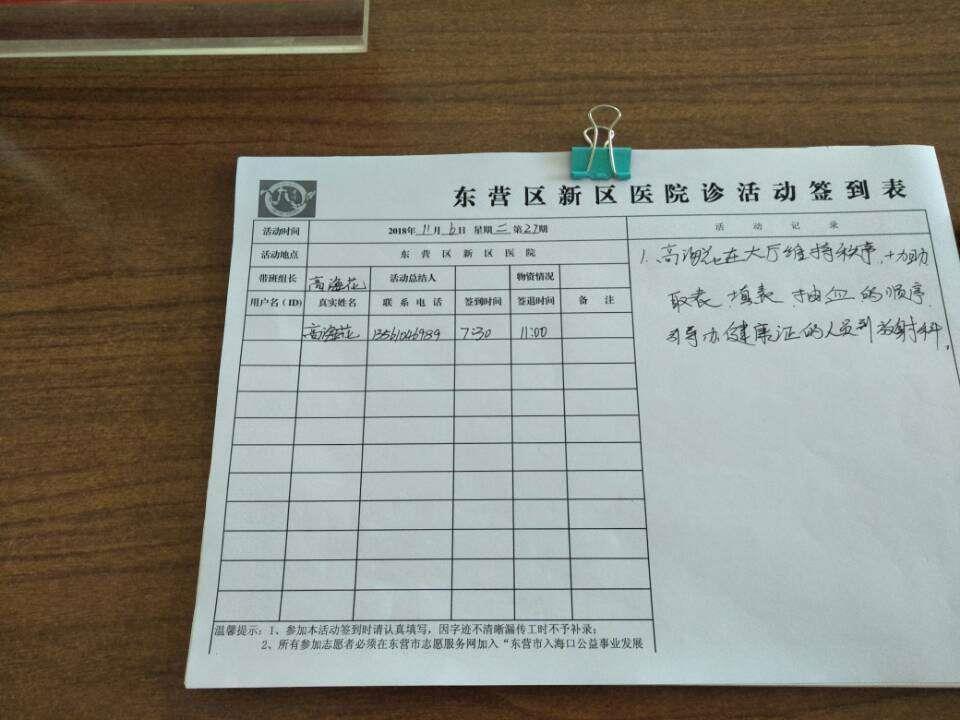 东营区新区医院诊活动签到表
活动时间 2018年11月6日 星期二 第27期
活动地点 东营区新区医院
带班组长 高海花 活动总结人 物资情况
用户名(ID) 真实姓名 联系电话 签到时间 签退时间 备注
高海花 13561046989 7:30 11:00
活动记录
1. 高海花在大厅维持秩序,协助
取表 填表 抽血的顺序
引导办健康证的人员到放射科。
温馨提示:1、参加本活动签到时请认真填写,因字迹不清晰漏传工时不予补录;
2、所有参加志愿者必须在东营市志愿服务网加入“东营市入海口公益事业发展